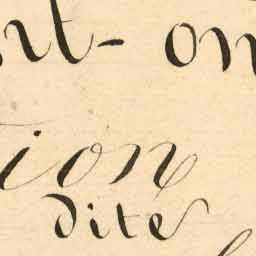 nt- on
tion
dite